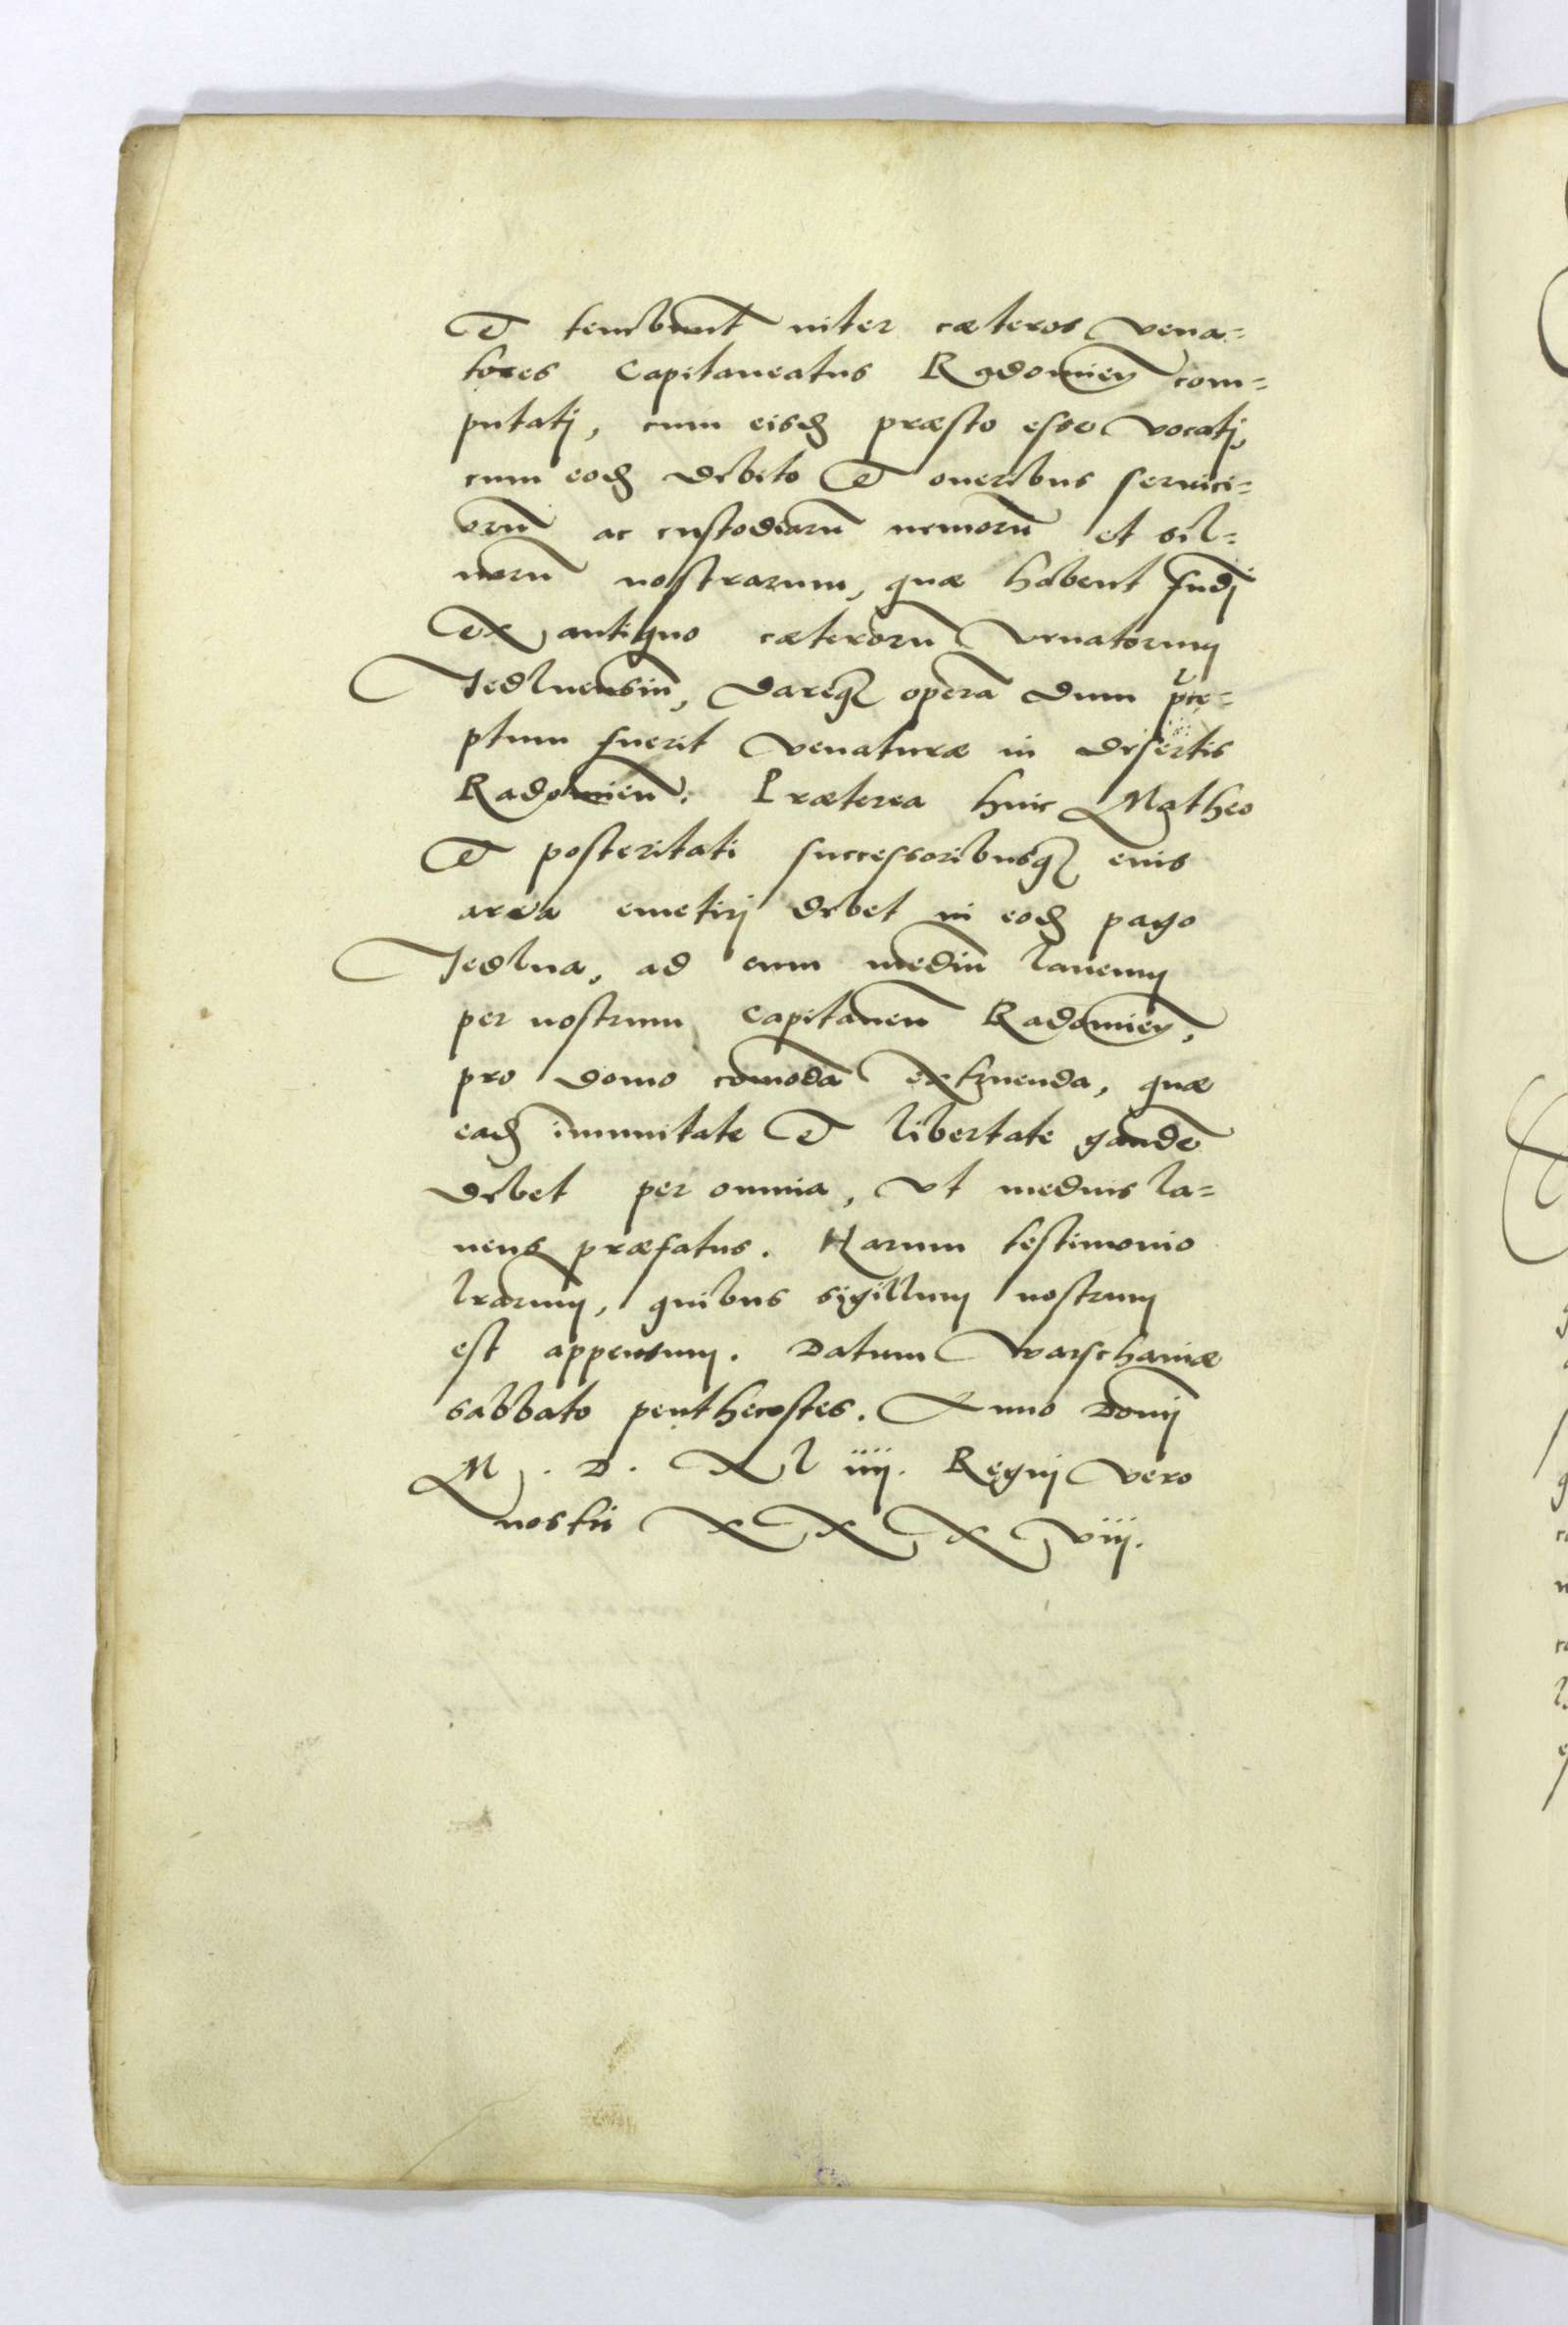 Et tenebunt inter cæteros vena=
tores Capitaneatus Radomień com=
putatj, cum eisđ præsto esse vocatj,
cum eođ debito Et oneribus seruici=
orū ac custodiarū nemorū et sil=
uarū nostrarum, quæ habent fundi
Ex antiquo cæterorū venatorum
Jedlnensiū, dareq̃ operā dum præce=
ptum fuerit venaturæ in desertis
Radomień. Præterea huic Matheo
Et posteritati successoribusq̃ eius
area emetirj debet in eođ pago
Jedlna, ad eum mediū laneum
per nostrum Capitaneū Radomień,
pro domo com̄oda extruenda, quæ
eađ im̄unitate Et libertate gaudē
debet per omnia, vt medius la=
neus præfatus. Harum testimonio
lrarum, quibus sigillum nostrum
est appensum. Datum Warschauiæ
sabbato penthecostes. Anno Domj
M. D. Xl iiij. Regnj vero
nostri XXXviij.